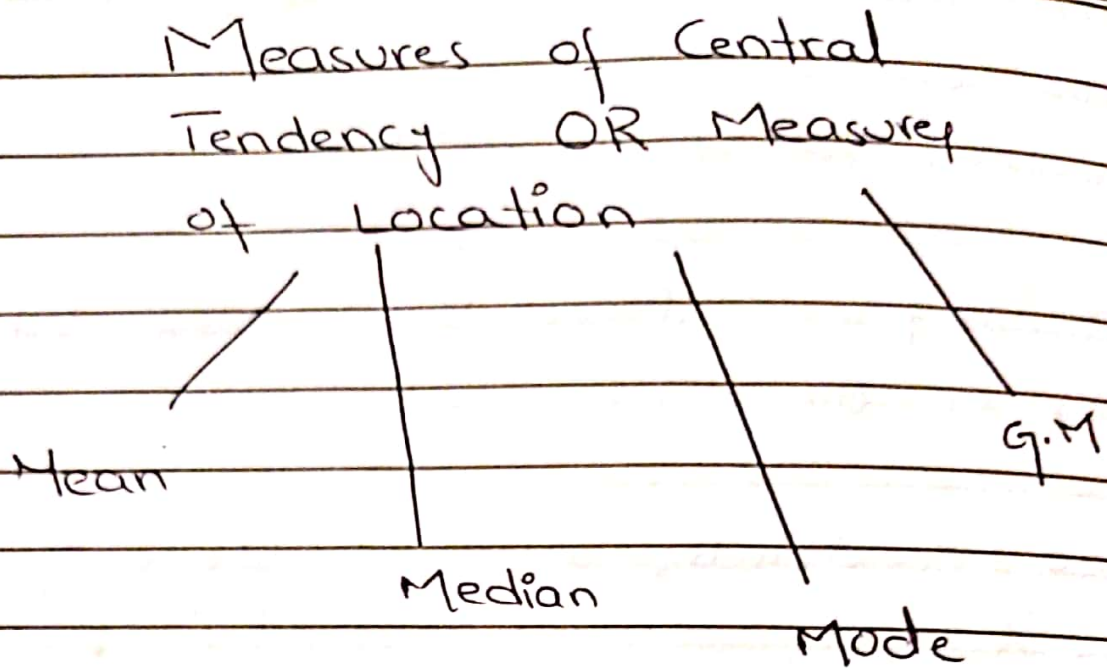 Measures of Central
Tendency OR Measures
of Location
G.M
Mean
Median
Mode